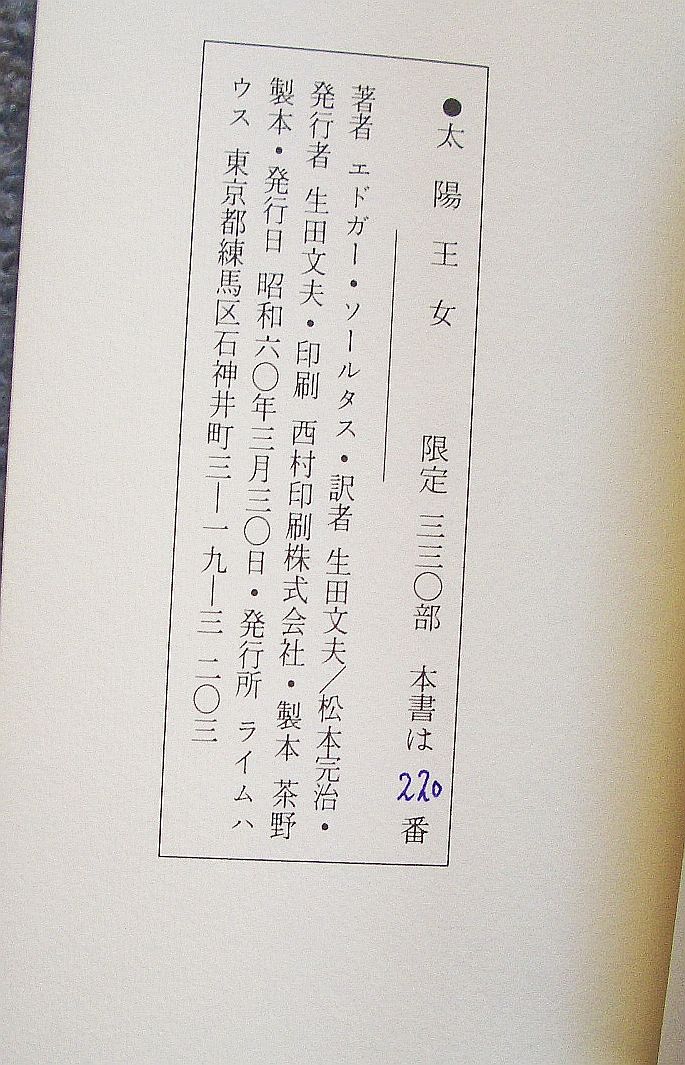 ●太陽王女 限定 三三〇部 本書は 220 番
著者 エドガー・ソールタス・訳者 生田文夫／松本完治・
発行者 生田文夫・印刷 西村印刷株式会社・製本 茶野
製本・発行日 昭和六〇年三月三〇日・発行所 ライムハ
ウス 東京都練馬区石神井町三ー一九ー三 二〇三